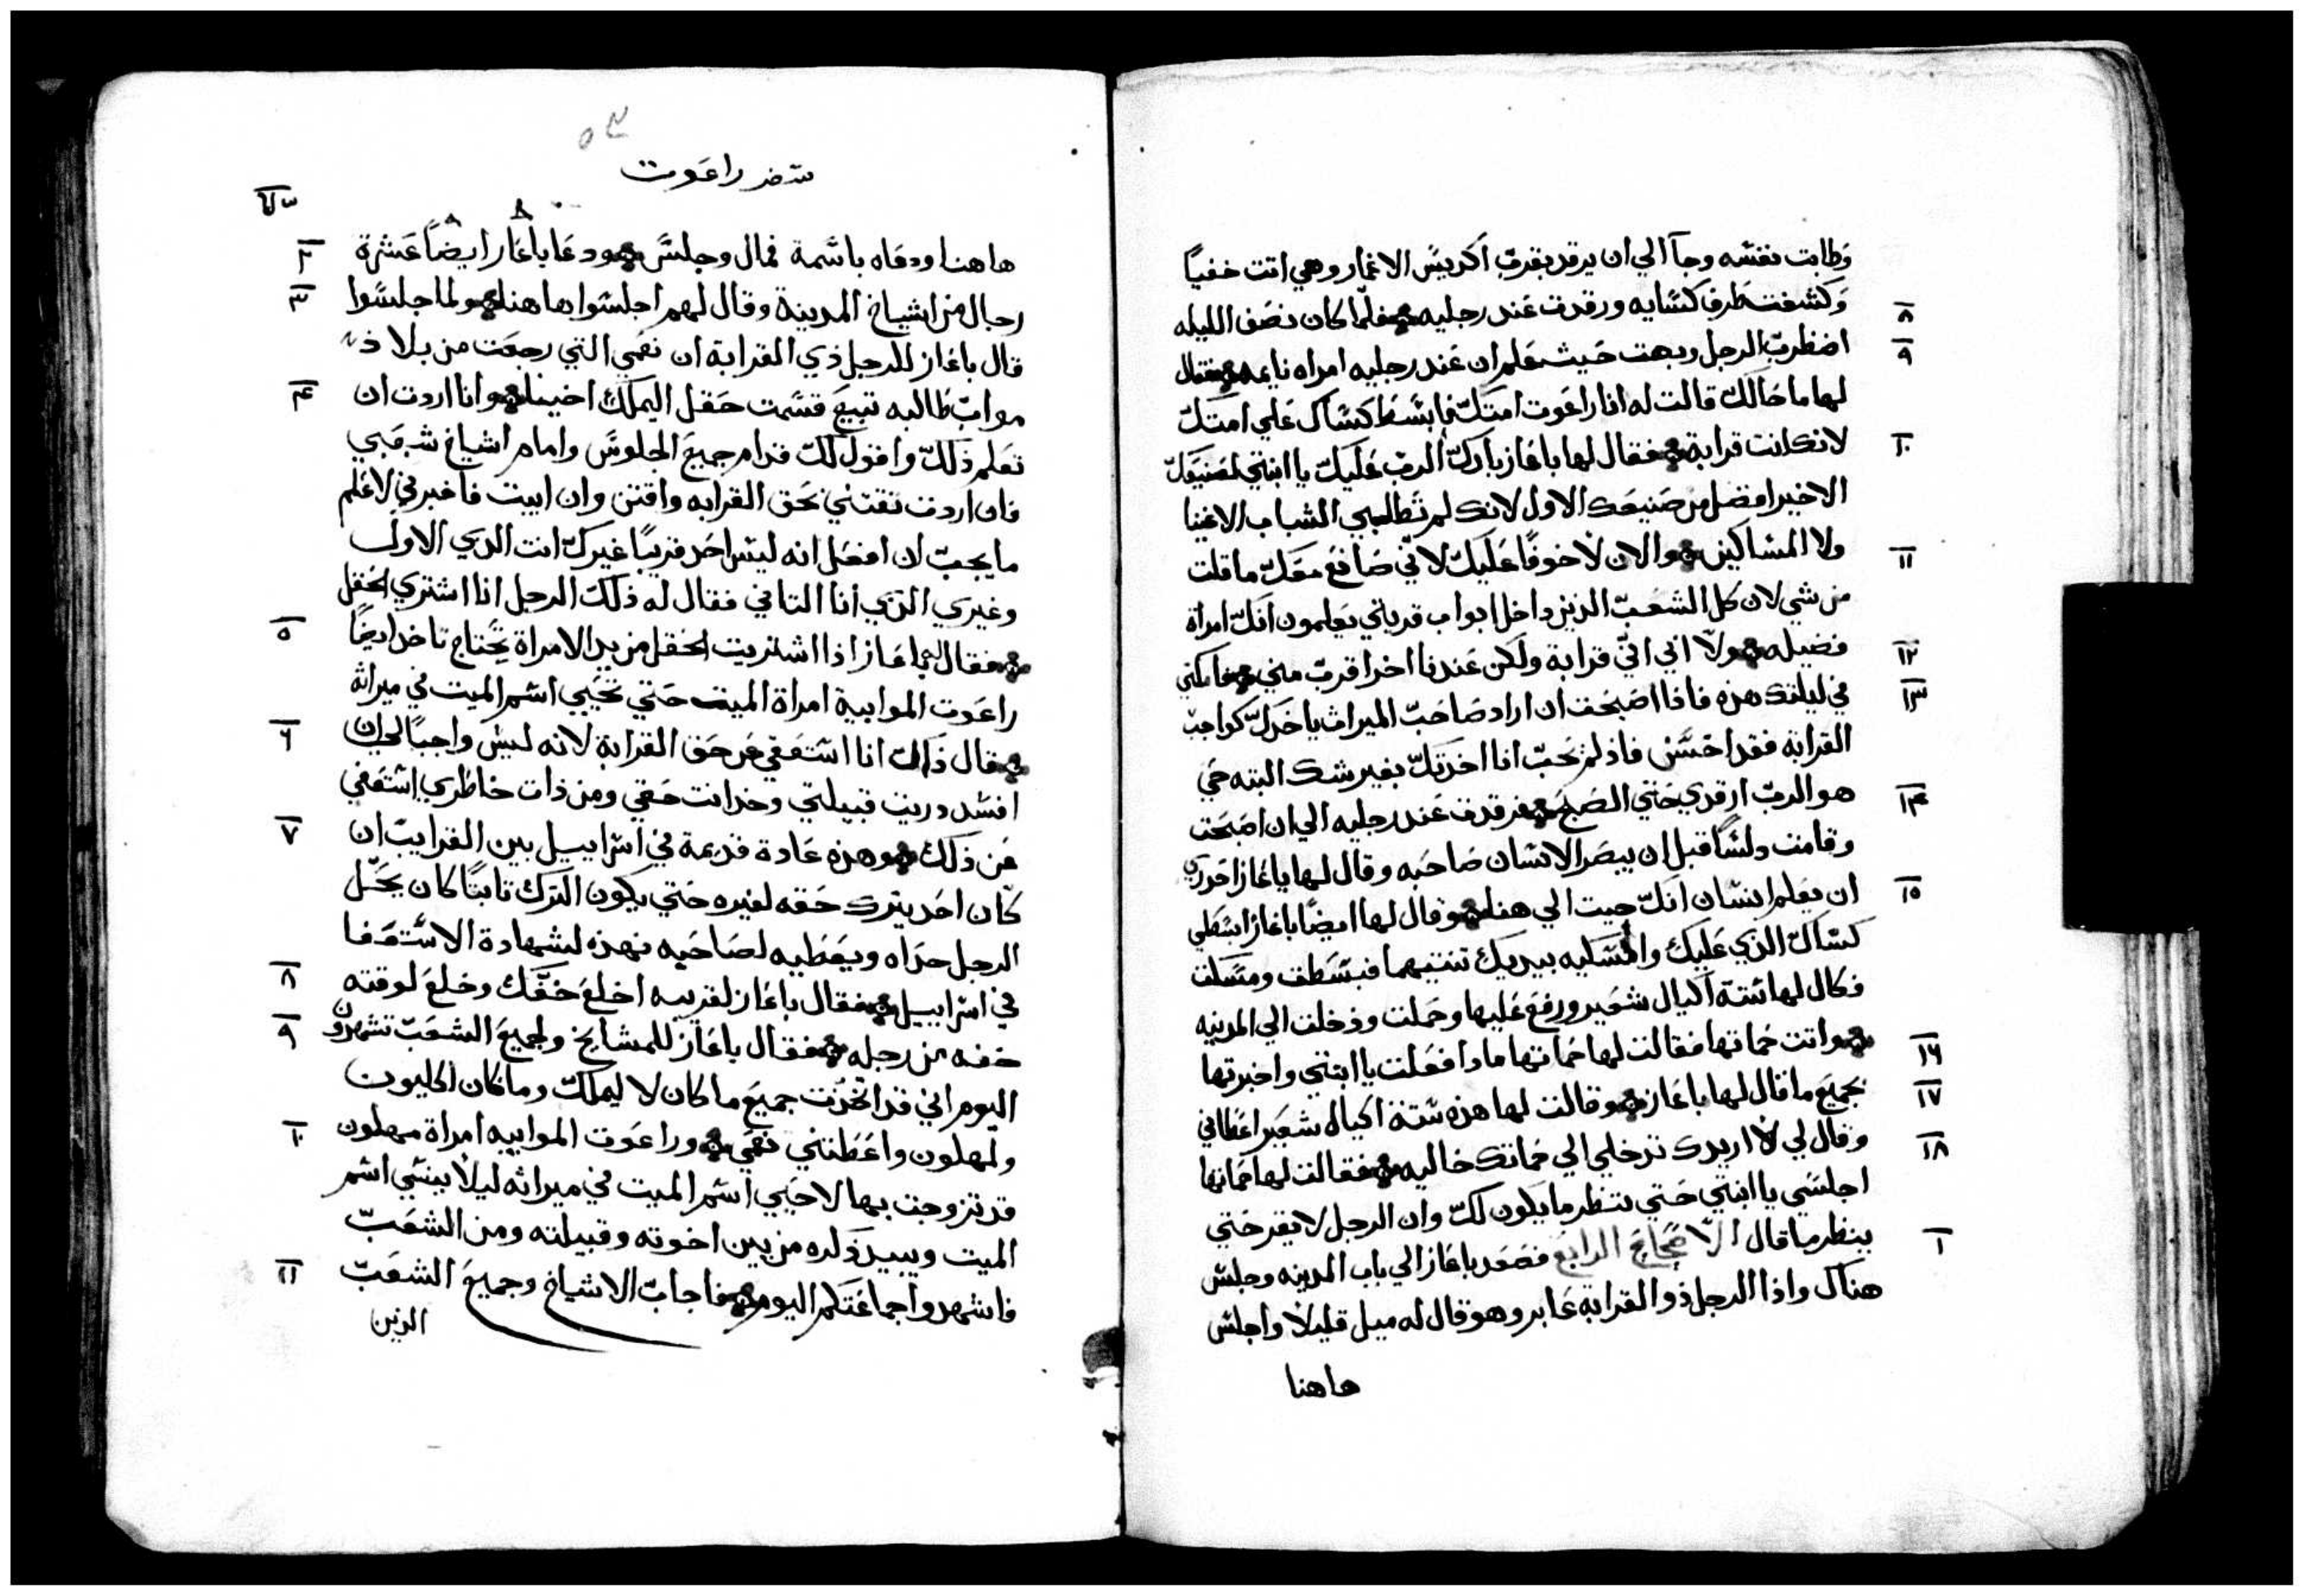 وطابت نفسه وجآ الي ان يرقد بقرب اكديس الاغمار وهي اتت خفياً
٨ وكشفت طرف كسايه ورقدت عند رجليه فلما كان نصف الليله
٩ اضطرب الرجل وبهت حيث علم ان عند رجليه امراه نايمه فقال
لها ما حالك قالت له انا راعوت امتك فابسط كساك علي امتك
١٠ لانك انت قرابة فقال لها باعاز بارك الرب عليك يا ابنتي لصنيعك
الاخير افضل من صنيعك الاول لانك لم تطالبي الشباب الاغنيا
١١ ولا المساكين والان لا خوفاً عليك لاني صانع معك ما قلت
من شي لان كل الشعب الذين داخل ابواب قريتي يعلمون انك امراة
١٢ فضيله ولا اني اني قرابة ولكن عندنا اخر اقرب مني فامكثي
١٣ في ليلتك هذه فاذا اصبحت ان اراد صاحب الميراث ياخدك كواجب
القرابة فقد احسن فاذ لم يحب انا اخدتك بغير شك البته حي
١٤ هو الرب ارقدي حتي الصبح فرقدت عند رجليه الي ان اصبحت
وقامت ولسًا قبل ان يبصر الانسان صاحبه وقال لها باعاز احدري
١٥ ان يعلم انسان انك جيت الي هنا وقال لها ايضًا باعاز ابسطي
كساك الذي عليك وامسكيه بيديك تنتيهما فبسطت ومسكت
فكال لها ستة اكيال شعير ورفع عليها وحملت ودخلت الي المدينه
١٦ واتت حماتها فقالت لها حماتها مادا فعلت يا ابنتي واخبرتها
١٧ بجميع ما قال لها باعاز وقالت لها هذه ستة اكيال شعير اعطاني
١٨ وقال لي لا اريدك تدخلي الي حماتك خاليه فقالت لها حماتها
اجلسي يا ابنتي حتي ننظر ما يكون لك وان الرجل لا يقر حتي
١ ينظر ما قال الاصحاح الرابع فصعد باعاز الي باب المدينه وجلس
هناك واذا الرجل ذو القرابة عابر وهو قال له ميل قليلاً واجلس
هاهنا
سفر راعوت
هاهنا ودعاه باسمة فمال وجلس ودعا باعاز ايضاً عشرة
٢ رجال من اشياخ المدينة وقال لهم اجلسوا هاهنا ولما جلسوا
٣ قال باعاز للرجل ذي القرابة ان نعمي التي رجعت من بلاد
٤ مواب طالبه تبيع قسمت حقل اليملك اخينا وانا اردت ان
تعلم ذلك واقول لك قدام جميع الجلوس وامام اشياخ شعبي
فان اردت تقتني بحق القرابه واقتن وان ابيت فاخبرني لاعلم
ما يجب ان افعل انه ليس احد قريباً غيرك انت الدي الاول
وغيري الذي انا التاني فقال له ذلك الرجل انا اشتري الحقل
٥ فقال له باعاز اذا اشتريت الحقل من يد الامراة يحتاج تاخد ايضاً
راعوت الموابية امراة الميت حتي تحيي اسم الميت في ميراثه
٦ فقال ذلك انا استعفي من حق القرابة لانه ليس واجباً لي ان
افسد دريت قبيلتي وخد انت حقي ومن ذات خاطري استعفي
٧ عن ذلك وهذه عادة قديمة في اسراييل بين القرايب ان
كان احد يترك حقه لغيره حتي يكون الترك تابتًا كان يحل
الرجل حداه ويعطيه لصاحبه فهذه لشهادة الاستعفا
٨ في اسراييل فقال باعاز لقريبه اخلع خفك وخلع لوقته
٩ خفه من رجله فقال باعاز للمشايخ ولجميع الشعب تشهدون
اليوم اني قد اتخدت جميع ما كان لاليملك وما كان لكليون
١٠ ولمهلون واعطتني نعمي وراعوت الموابيه امراة مهلون
قد تزوجت بها لاحيي اسم الميت في ميراثه ليلا ينسي اسم
الميت ويبيد ذكره من بين اخوته وقبيلته ومن الشعب
١١ فاشهدوا جماعتكم اليوم فاجاب الاشياخ وجميع الشعب
الذين